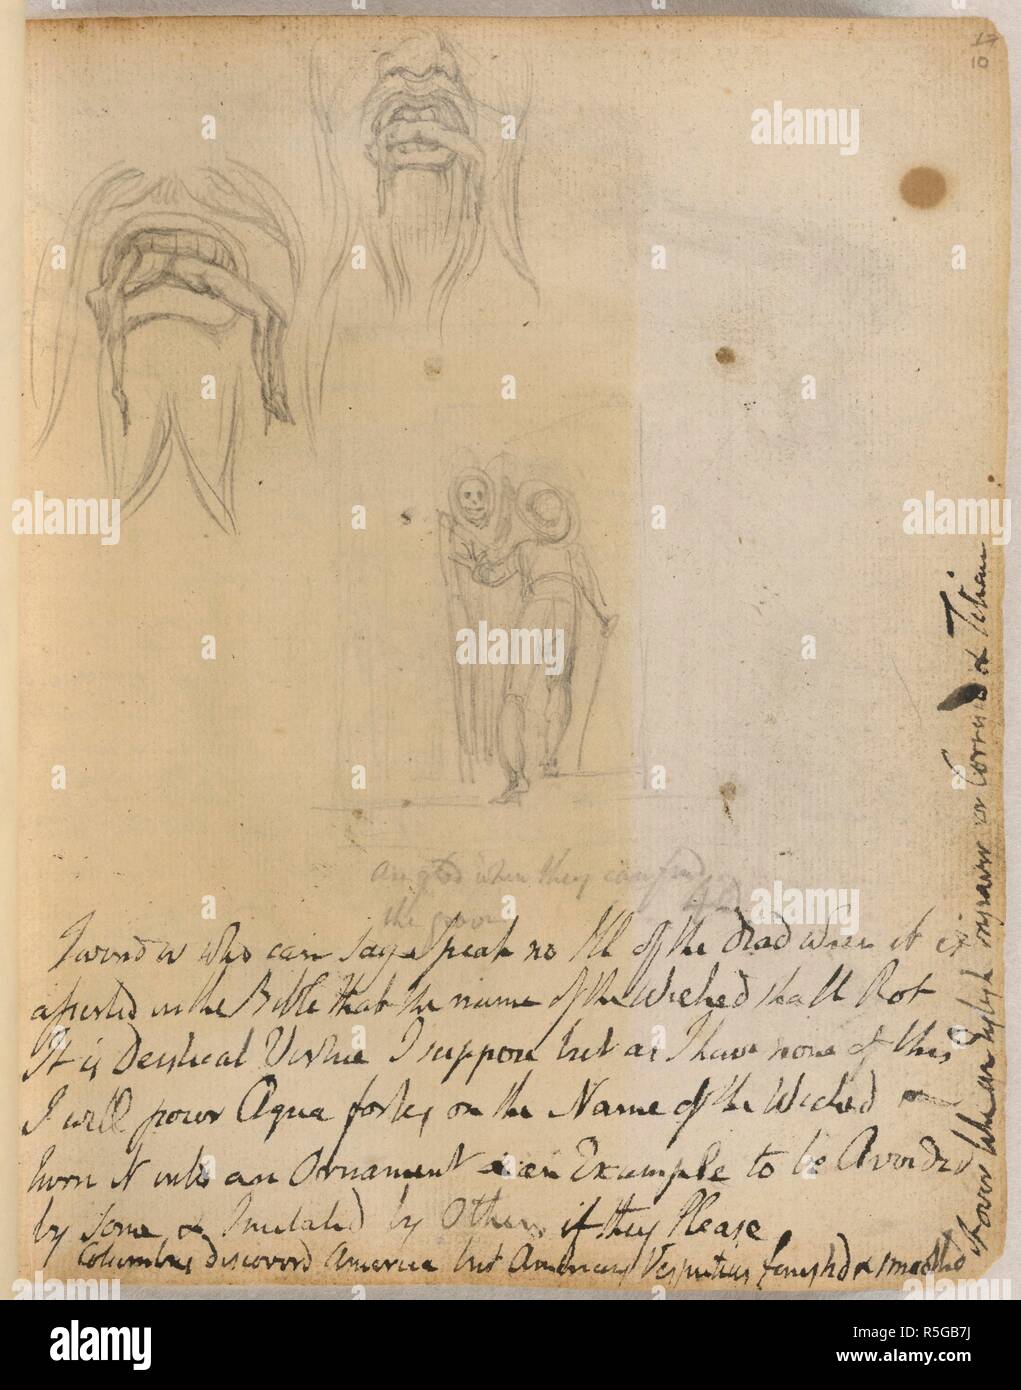 17
10
Angels when they confess
the
I wonder who can say Speak no Ill of the dead when it is
asserted in the Bible that the name of the Wicked shall Rot
It is Deistical Virtue I suppose but as I have none of this
I will pour Aqua fortis on the Name of the Wicked &
turn it into an Ornament & an Example to be Avoided
by Some & Imitated by Others if they Please
Columbus discoverd America but Americus Vesputius finishd & smoothd
it over like an English Engraver or Corregio & Titian
alamy
a
Image ID: R5GB7J
www.alamy.com